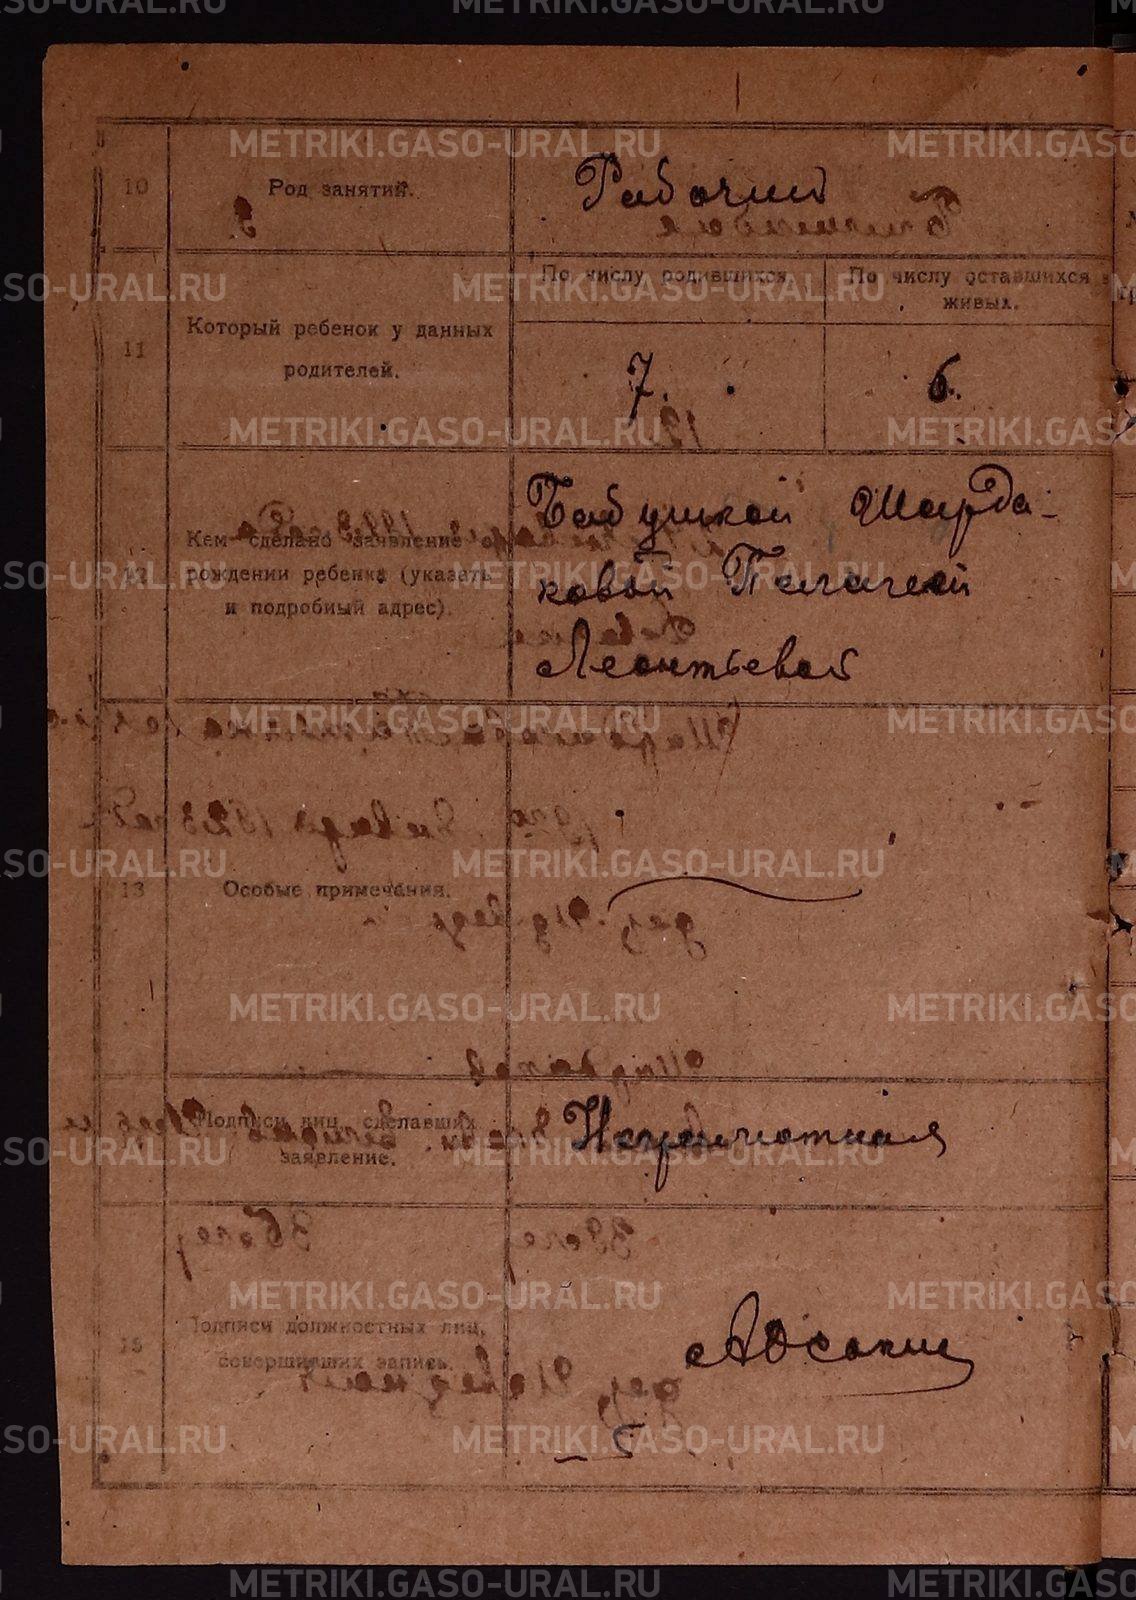 10
Род занятий.
Рабочий
11
Который ребенок у данных
родителей.
По числу родившихся.
По числу оставшихся в
живых.
7.
6.
Кем сделано заявление о
рождении ребенка (указать
и подробный адрес).
Бабушкой Шарда-
ковой Пелагеей
Леонтьевой
13
Особые примечания.
Подписи лиц, сделавших
заявление.
Неграмотная
15
Подписи должностных лиц,
совершивших запись.
METRIKI.GASO-URAL.RU